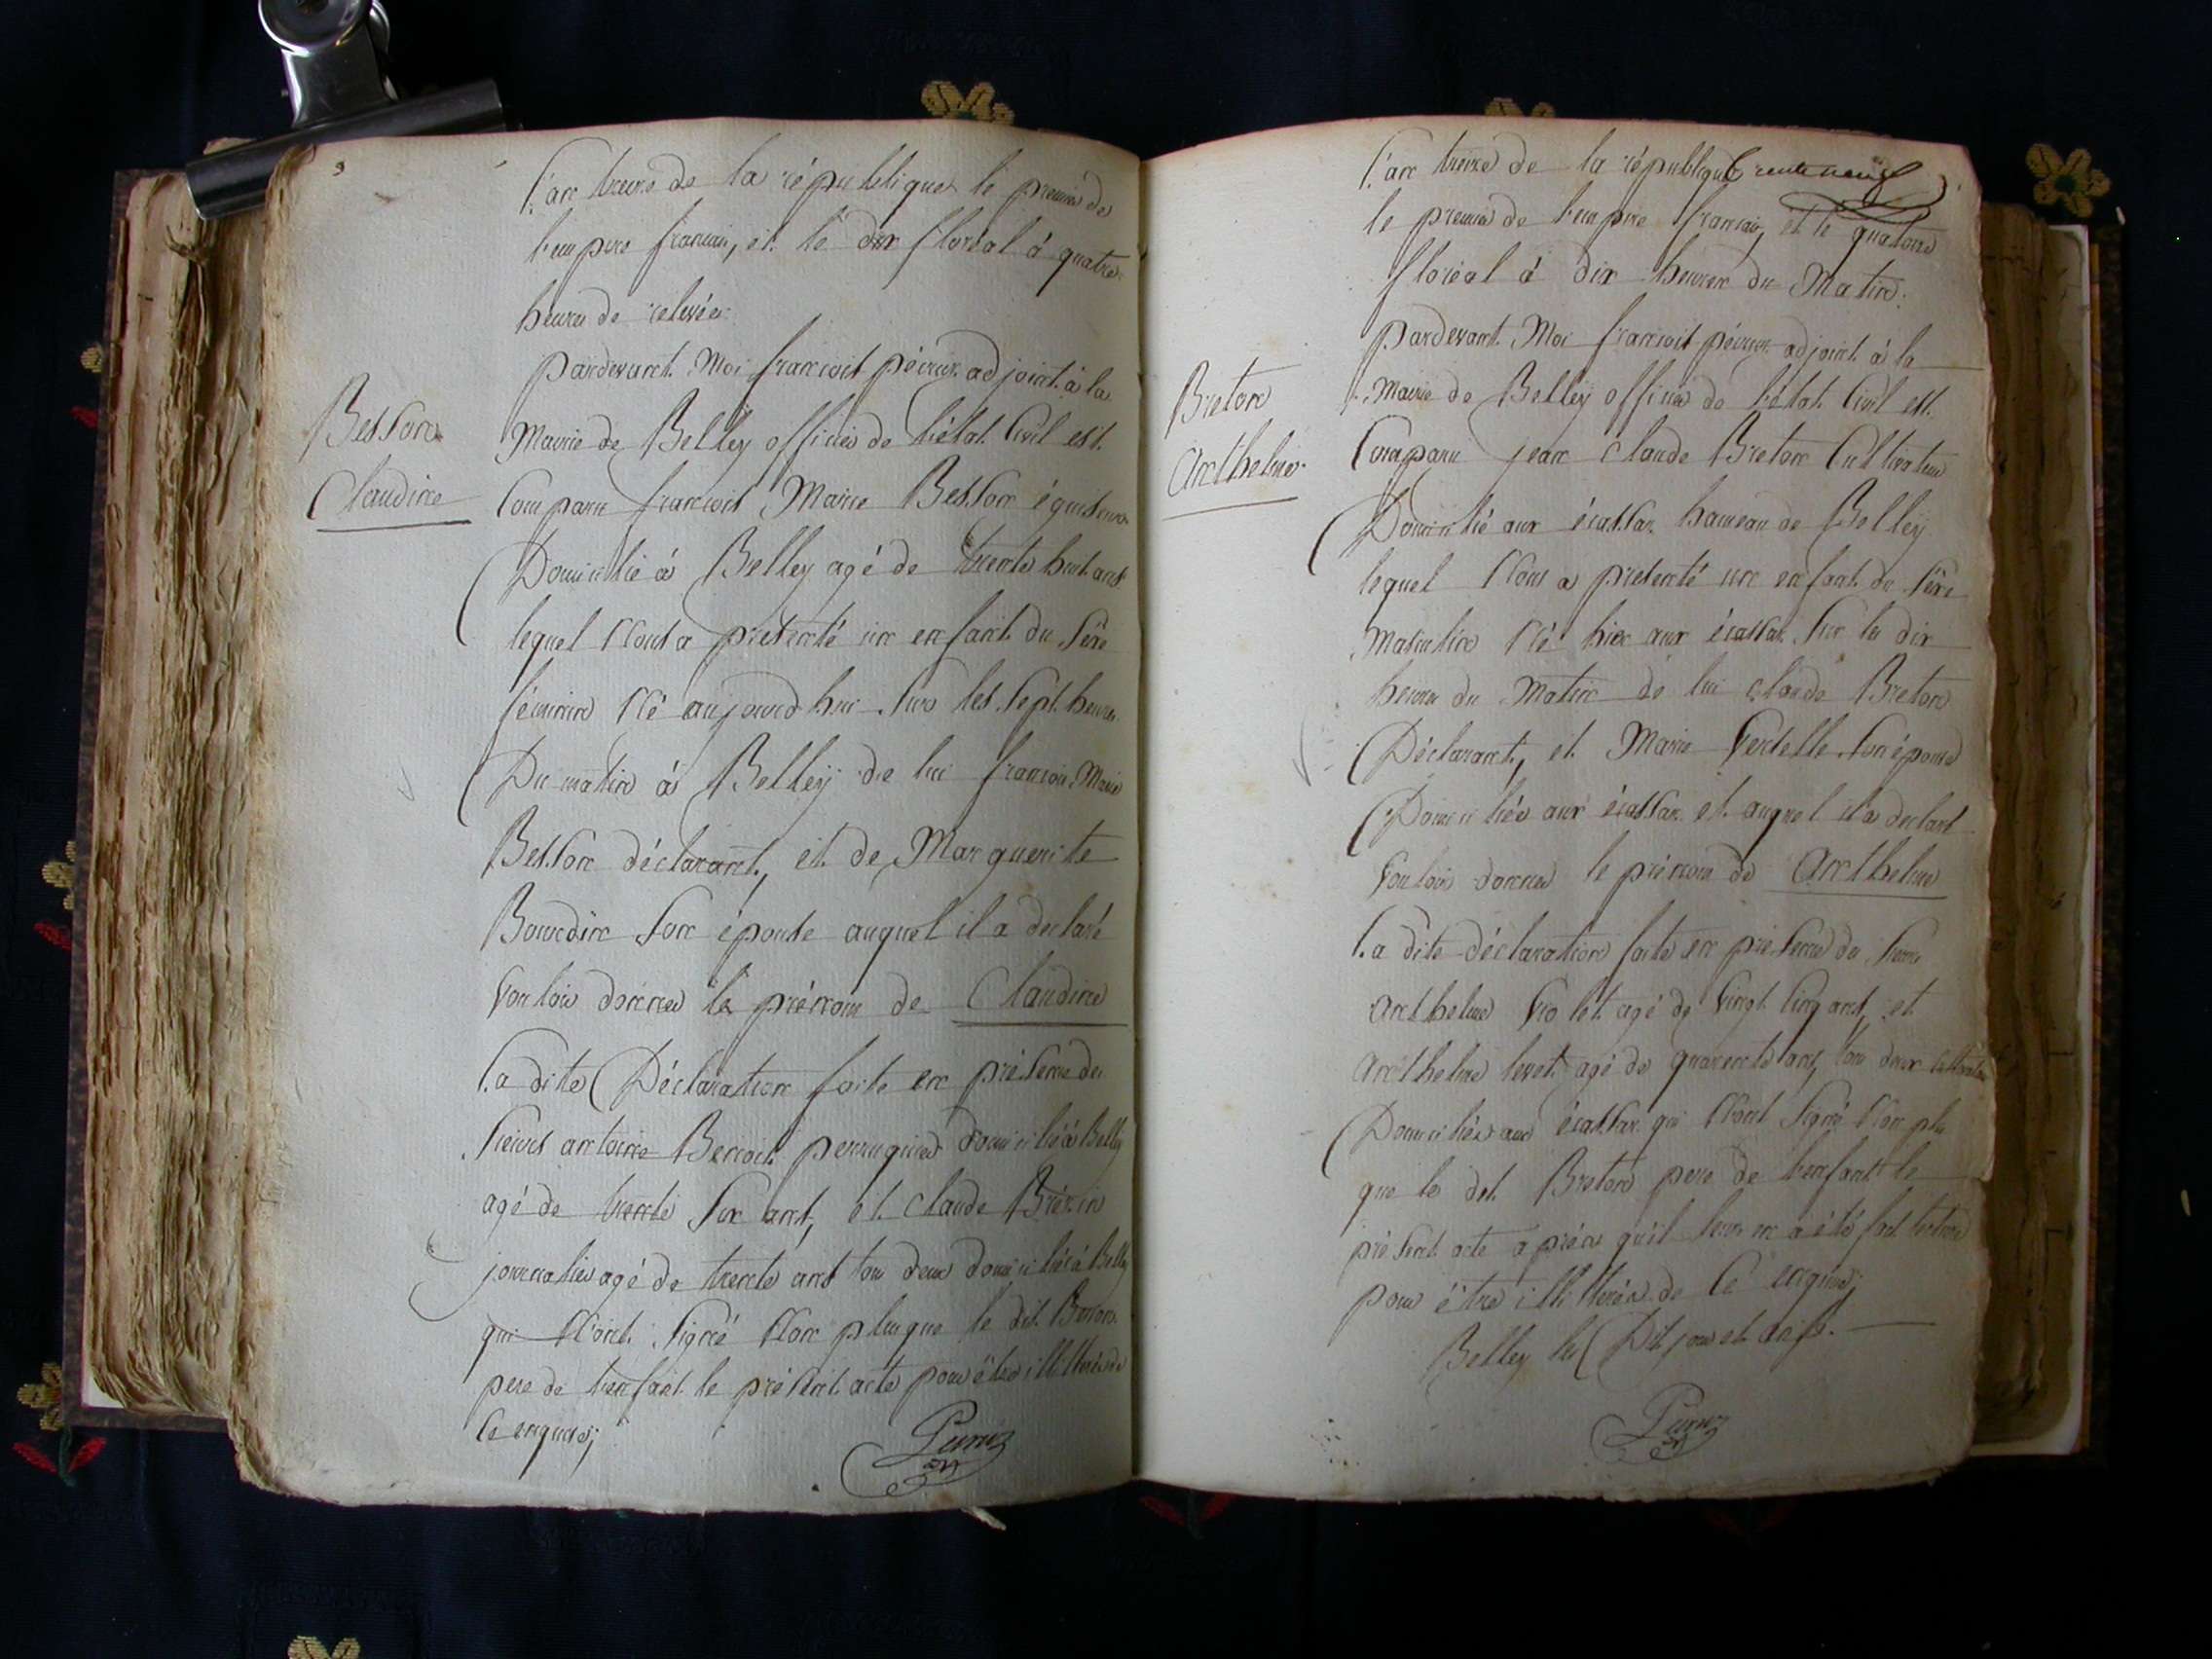 L'an treize de la république le premier de
l'empire francais, et le dix floréal à quatre
heures de relevée
pardevant Moi francois péruz adjoint à la
Besson
Mairie de Belley officier de l'état Civil est
Claudine
Comparu francois Marie Besson
Domicilié à Belley agé de trente huit ans
lequel Nous a presenté un enfant du Séxe
féminin Né aujourd'hui Sur les Sept heures
Du matin à Belley de lui francois Marie
Besson déclarant, et de Marguerite
Bourdin Son épouse auquel il a declaré
Vouloir donner le prénom de Claudine
La dite Déclaration faite en présence des
Sieurs antoine Benoit perruquier domicilié à Belley
agé de trente Six ans, et Claude
journalier agé de trente ans tous deux domiciliés à Belley
qui N'ont Signé Non plus que le dit Besson
pere de l'enfant le présent acte pour être illitterés de
Ce enquis;
L'an treize de la république trente neuf
le premier de l'empire francais, et le quatorze
floréal à dix heures du Matin.
pardevant Moi francois péruz adjoint à la
Breton
Mairie de Belley officier de l'état Civil est
Anthelme
Comparu jean Claude Breton Cultivateur
Domicilié aux écassaz hameau de Belley
lequel Nous a presenté un enfant du Séxe
Masculin Né hier aux écassaz Sur les dix
heures du Matin de lui Claude Breton
Déclarant, et Marie Son épouse
Domiciliés aux écassaz et auquel il a declaré
Vouloir donner le prénom de Anthelme
La dite déclaration faite en présence des Sieurs
Anthelme Violet agé de Vingt Cinq ans, et
Anthelme levet agé de quarante ans, tous deux Cultivateurs
Domiciliés aux écassaz qui N'ont Signé Non plus
que le dit Breton pere de l'enfant le
présent acte après qu'il leur en a été fait lecture
pour être illitterés de Ce enquis;
Belley les Dit jour et an